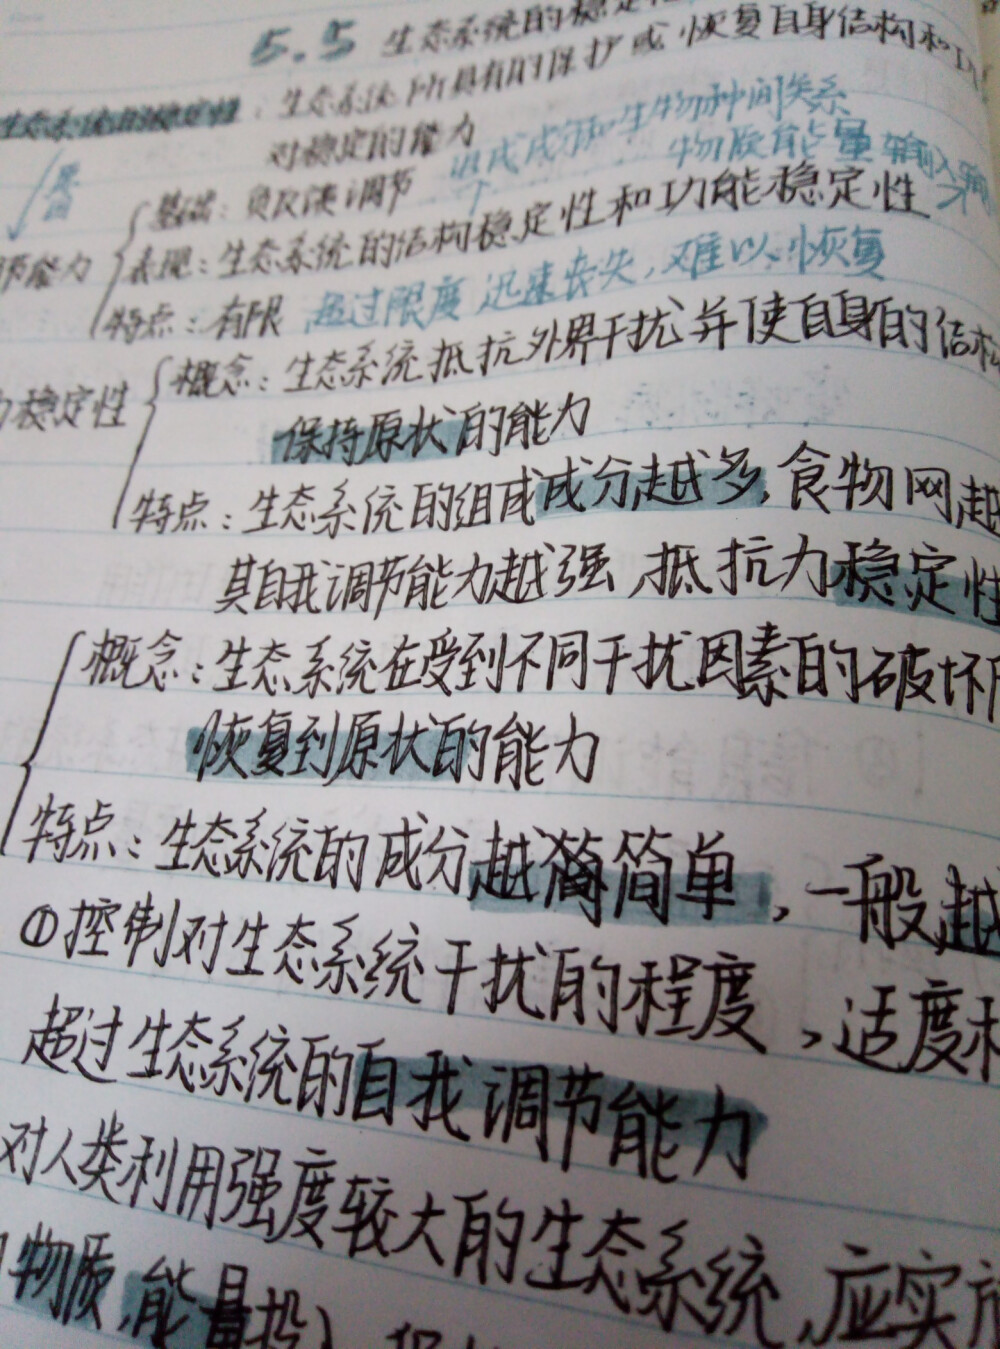 5.5 生态系统的稳定性
生态系统的稳定性：生态系统所具有的保护或恢复自身结构和功
对稳定的能力
组成成分和生物种间关系
物质能量输入输
原因
基础：负反馈调节
节能力
表现：生态系统的结构稳定性和功能稳定性
特点：有限 超过限度 迅速丧失，难以恢复
力稳定性
概念：生态系统抵抗外界干扰并使自身的结构
保持原状的能力
特点：生态系统的组成成分越多，食物网越
其自我调节能力越强，抵抗力稳定性
概念：生态系统在受到不同干扰因素的破坏
恢复到原状的能力
特点：生态系统的成分越简单，一般越
①控制对生态系统干扰的程度，适度
超过生态系统的自我调节能力
对人类利用强度较大的生态系统，应实
物质，能量投入